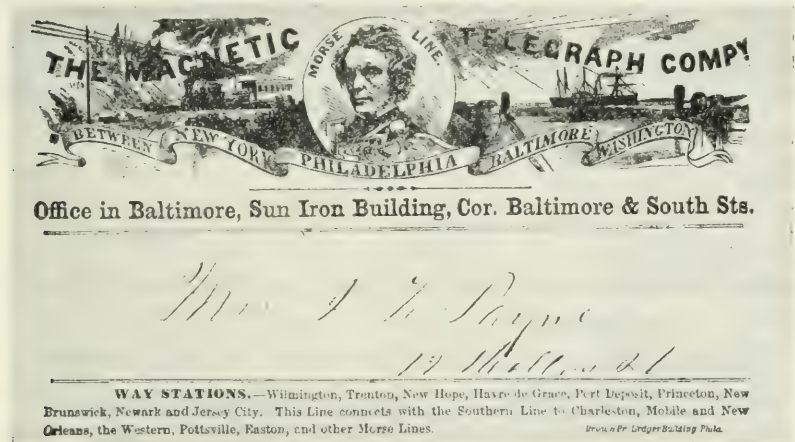 THE MAGNETIC TELEGRAPH COMPY
MORSE LINE.
BETWEEN NEW YORK PHILADELPHIA BALTIMORE WASHINGTON
Office in Baltimore, Sun Iron Building, Cor. Baltimore & South Sts.
Mr J
Payne
WAY STATIONS.—Wilmington, Trenton, New Hope, Havre de Grace, Port Deposit, Princeton, New
Brunswick, Newark and Jersey City. This Line connects with the Southern Line to Charleston, Mobile and New
Orleans, the Western, Pottsville, Easton, and other Morse Lines.
Brown Pr Ledger Building Phila.